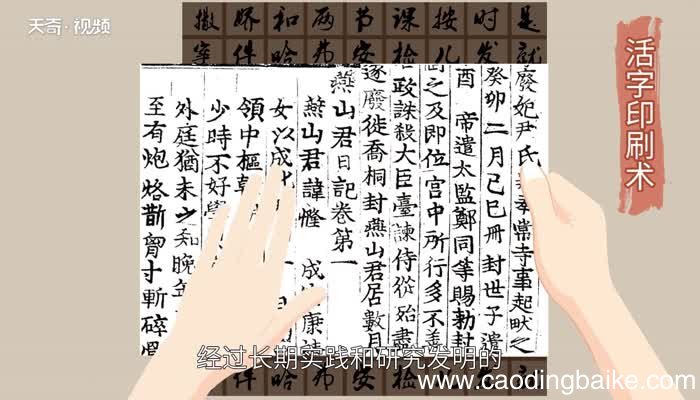 天奇·视频
撒娇和两节课按时是
件哈弗安检儿发就
活字印刷术
廢妃尹氏常寺事起畎之
癸卯二月己巳冊封世子遣
酉 帝遣太監鄭同等賜勅封
之及即位宮中所行多不善
政誅殺大臣臺諫侍從殆盡
遂廢徙喬桐封燕山君居數月
燕山君日記卷第一
燕山君諱㦕 成康靖
女以成
領中樞
少時不好學
外庭猶未之知晚年
至有炮烙斮胷寸斬碎
经过长期实践和研究发明的
件哈弗安检
www.caodingbaike.com